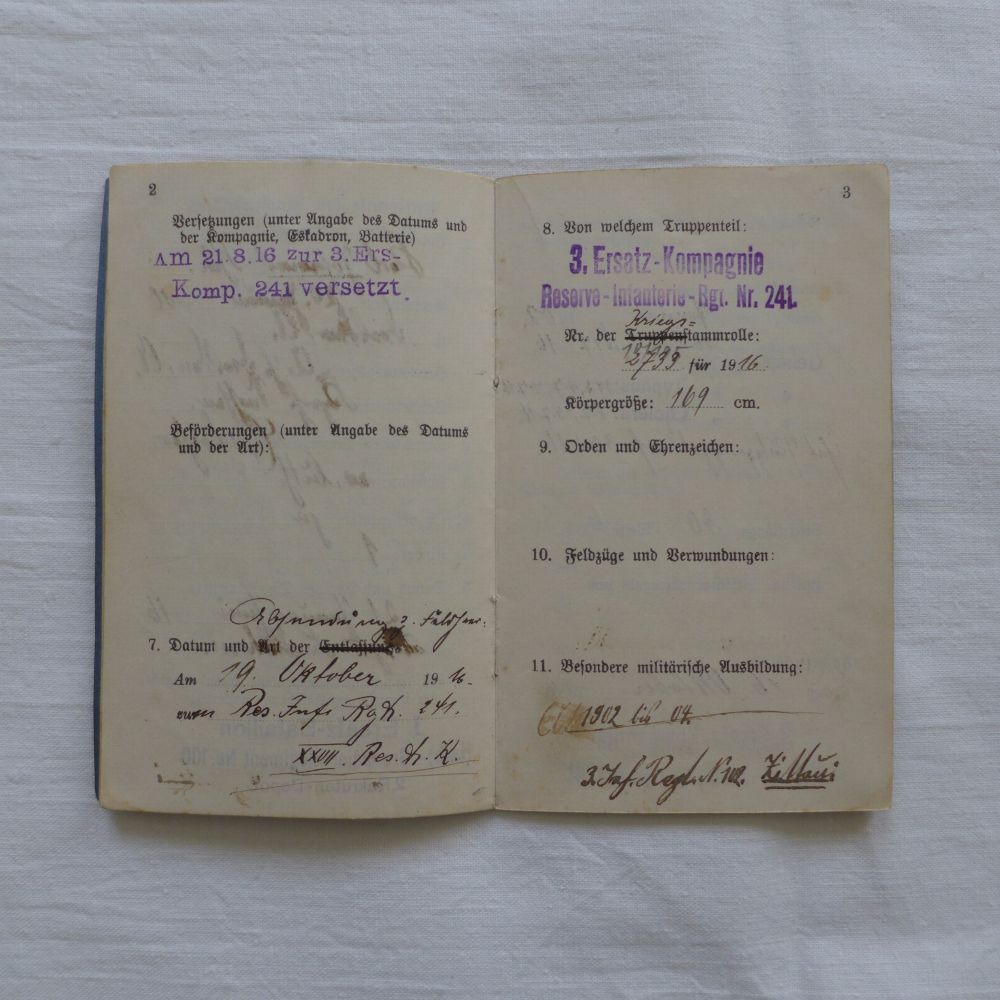 2
Versetzungen (unter Angabe des Datums und
der Kompagnie, Eskadron, Batterie)
Am 21.8.16 zur 3. Ers-
Komp. 241 versetzt.
Beförderungen (unter Angabe des Datums
und der Art):
Absendung z. Feldheer:
7. Datum und Art der Entlassung:
Am 19. Oktober 1916.
zum Res. Inf. Rgt. 241.
XXVII. Res. A. K.
3
8. Von welchem Truppenteil:
3. Ersatz-Kompagnie
Reserve-Infanterie-Rgt. Nr. 241.
Kriegs=
Nr. der Truppenstammrolle:
2733 für 1916.
Körpergröße: 169 cm.
9. Orden und Ehrenzeichen:
10. Feldzüge und Verwundungen:
11. Besondere militärische Ausbildung:
1902 bis 04.
3. Inf. Regt. N. 102. Zittau